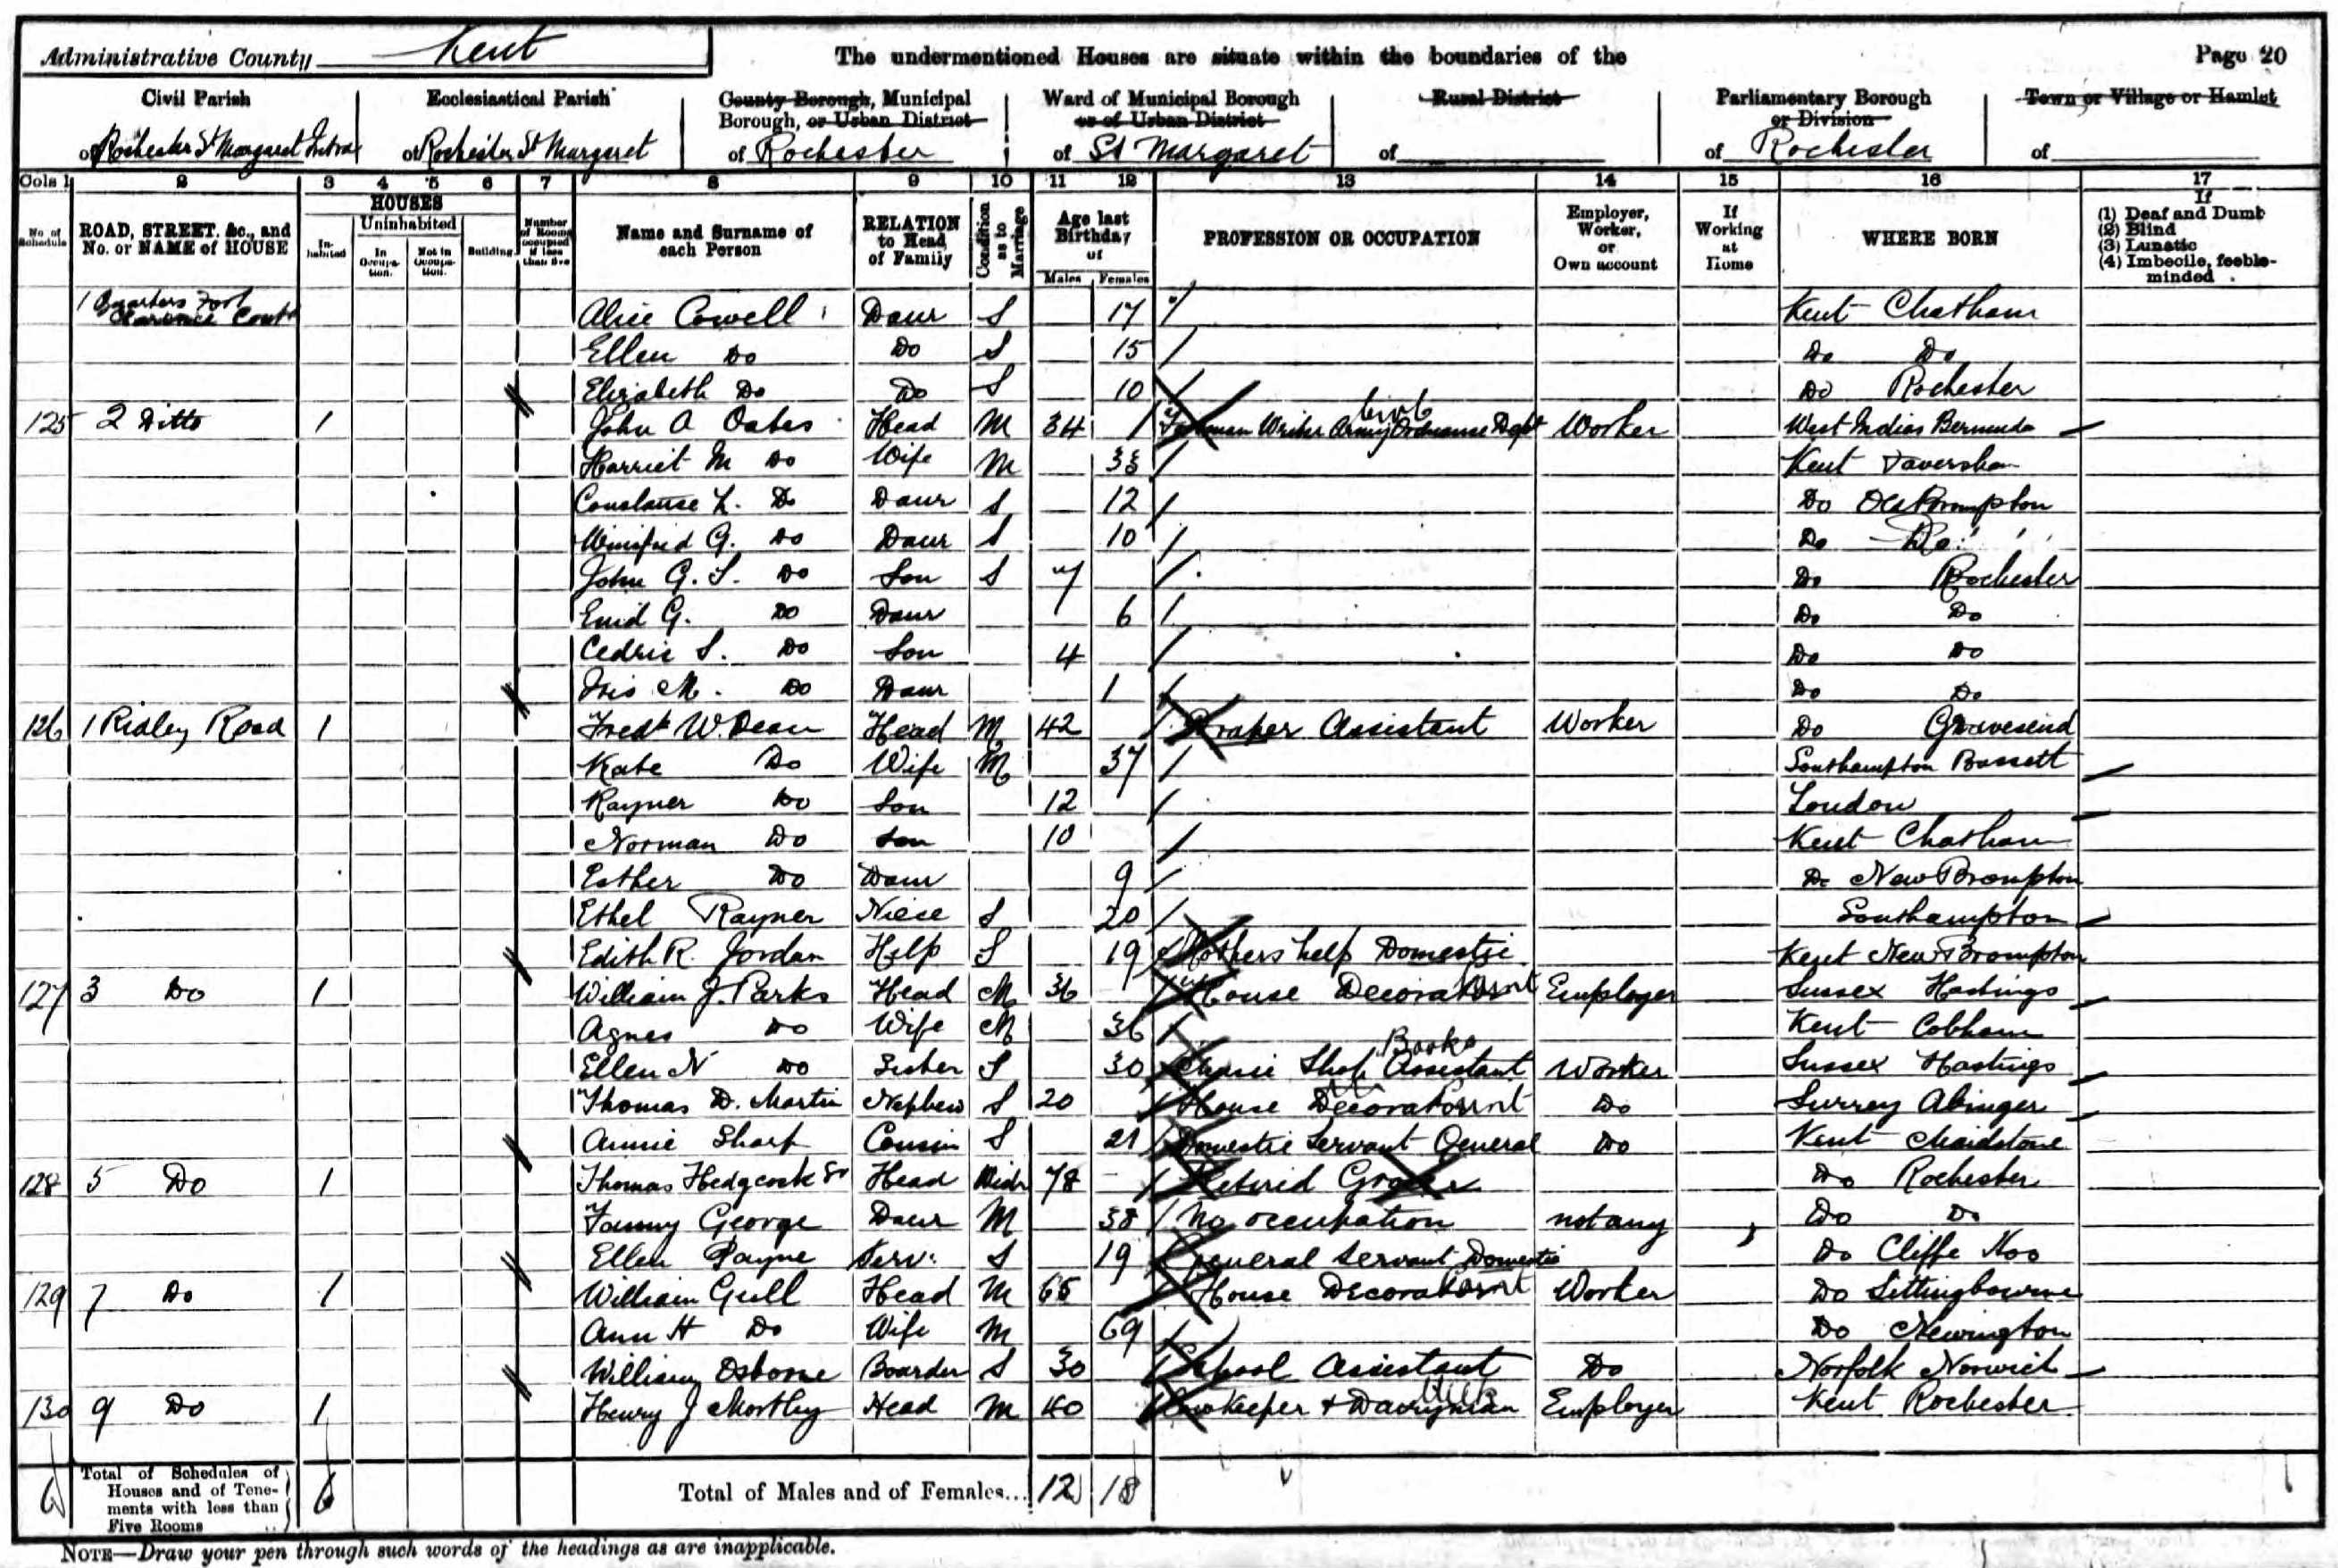 Administrative County Kent The undermentioned Houses are situate within the boundaries of the Page 20
Civil Parish Ecclesiastical Parish County Borough, Municipal Borough, or Urban District Ward of Municipal Borough or of Urban District Rural District Parliamentary Borough or Division Town or Village or Hamlet
of Rochester St Margaret Intra of Rochester St Margaret of Rochester of St Margaret of of Rochester of
Cols 1 2 3 4 5 6 7 8 9 10 11 12 13 14 15 16 17
No. of Schedule ROAD, STREET, &c., and No. or NAME of HOUSE HOUSES Inhabited Uninhabited In Occupation. Not in Occupation. Building Number of Rooms occupied if less than five Name and Surname of each Person RELATION to Head of Family Condition as to Marriage Age last Birthday of Males Females PROFESSION OR OCCUPATION Employer, Worker, or Own account If Working at Home WHERE BORN If (1) Deaf and Dumb (2) Blind (3) Lunatic (4) Imbecile, feeble-minded
1 Quarters Fort Clarence Cont Alice Cowell Daur S 17 Kent Chatham
Ellen Do Do S 15 Do Do
Elizabeth Do Do S 10 Do Rochester
125 2 Ditto 1 John A Oates Head M 34 Writer Army Ordnance Dept Worker West Indies Bermuda
Harriet M Do Wife M 33 Kent Faversham
Constance L. Do Daur S 12 Do Old Brompton
Winifred G. Do Daur S 10 Do Do
John G. S. Do Son S 7 Do Rochester
Enid G. Do Daur 6 Do Do
Cedric S. Do Son 4 Do Do
Iris M. Do Daur 1 Do Do
126 1 Ridley Road 1 Fredk W. Dean Head M 42 Draper Assistant Worker Do Gravesend
Kate Do Wife M 37 Southampton Bassett
Rayner Do Son 12 London
Norman Do Son 10 Kent Chatham
Esther Do Daur 9 Do New Brompton
Ethel Rayner Niese S 20 Southampton
Edith R. Jordan Help S 19 Mothers help Domestic Kent New Brompton
127 3 Do 1 William J. Parks Head M 36 House Decorator Employer Sussex Hastings
Agnes Do Wife M 36 Kent Cobham
Ellen N Do Sister S 30 Shop Assistant Books Worker Sussex Hastings
Thomas D. Martin Nephew S 20 House Decorator Do Surrey Abinger
Annie Sharp Cousin S 21 Domestic Servant General Do Kent Maidstone
128 5 Do 1 Thomas Hedgcock Sr Head Widr 78 Retired Grocer Do Rochester
Fanny George Daur M 38 No occupation not any Do Do
Ellen Payne Serv. S 19 General Servant Domestic Do Cliffe Hoo
129 7 Do 1 William Gull Head M 65 House Decorator Worker Do Sittingbourne
Ann H Do Wife M 69 Do Newington
William Osborne Boarder S 30 School Assistant Do Norfolk Norwich
130 9 Do 1 Henry J Mortley Head M 40 Cowkeeper + Dairyman Milk Employer Kent Rochester
6 Total of Schedules of Houses and of Tenements with less than Five Rooms 6 Total of Males and of Females... 12 18
NOTE—Draw your pen through such words of the headings as are inapplicable.